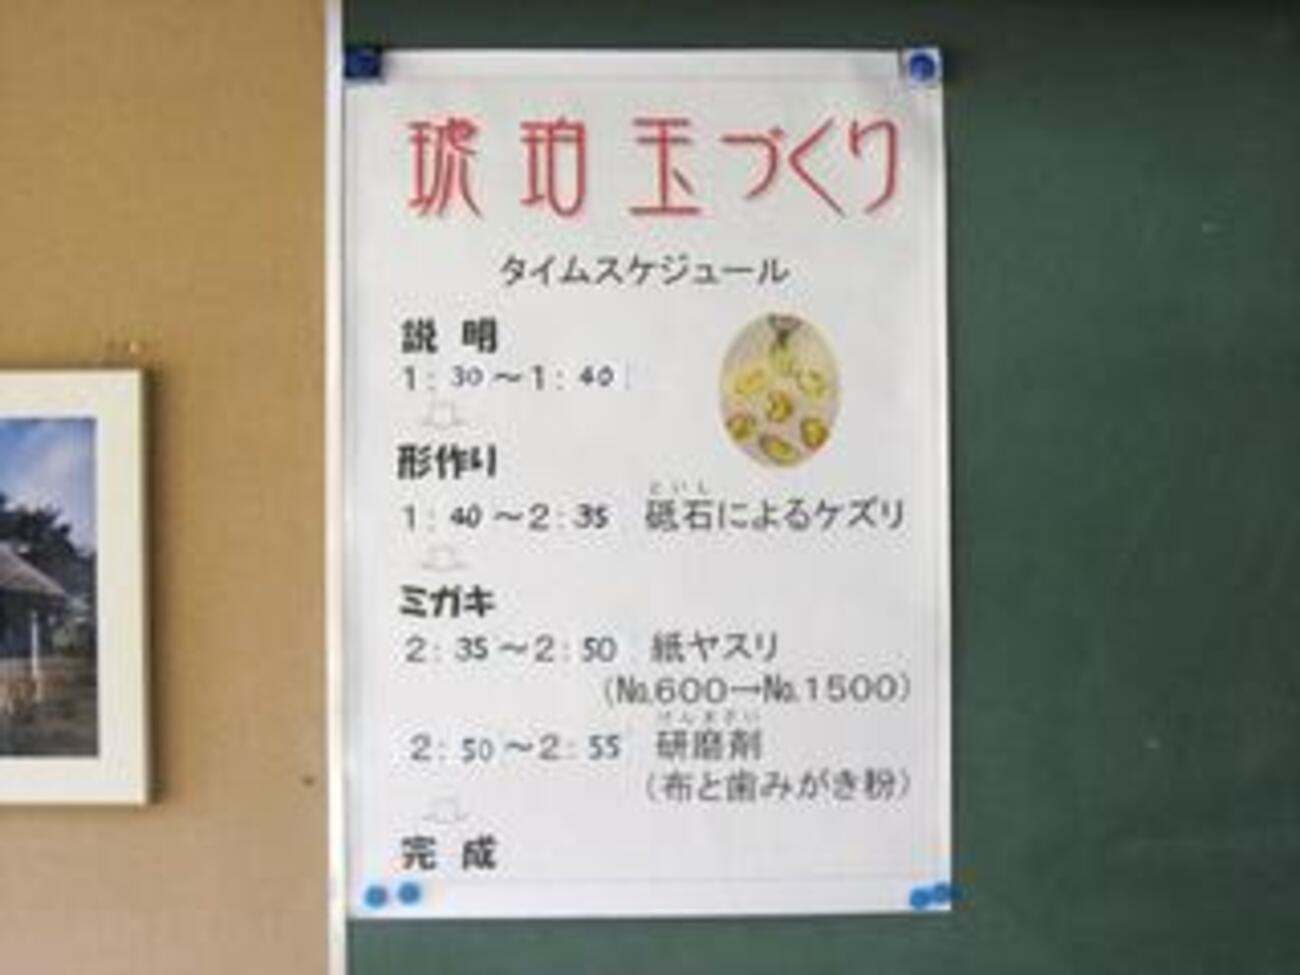 琥珀玉づくり
タイムスケジュール
説明
1:30～1:40
形作り
といし
1:40～2:35 砥石によるケズリ
ミガキ
2:35～2:50 紙ヤスリ
(№600→№1500)
けんまざい
2:50～2:55 研磨剤
(布と歯みがき粉)
完成